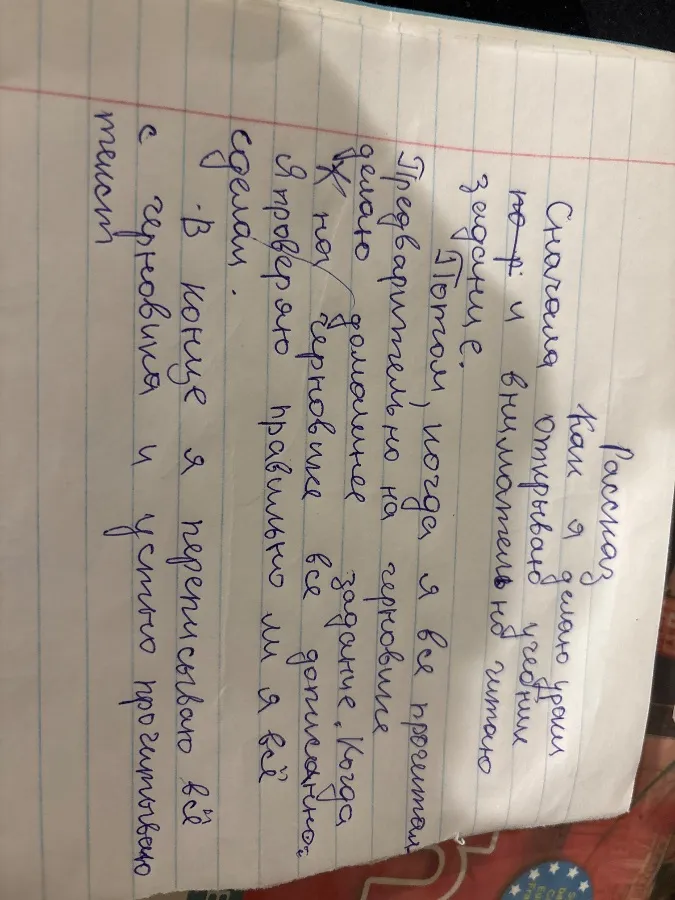 Рассказ
Как я делаю урки
Сначала открываю учебник
по р и внимательно читаю
задание.
Потом, когда я все прочитал
Предварительно на черновике
делаю домашнее задание. Когда
Ж на черновике все дописанно-
Я проверяю правильно ли я всё
сделал.
. В конце я переписываю всё
с черновика и устно прочитываю
текст